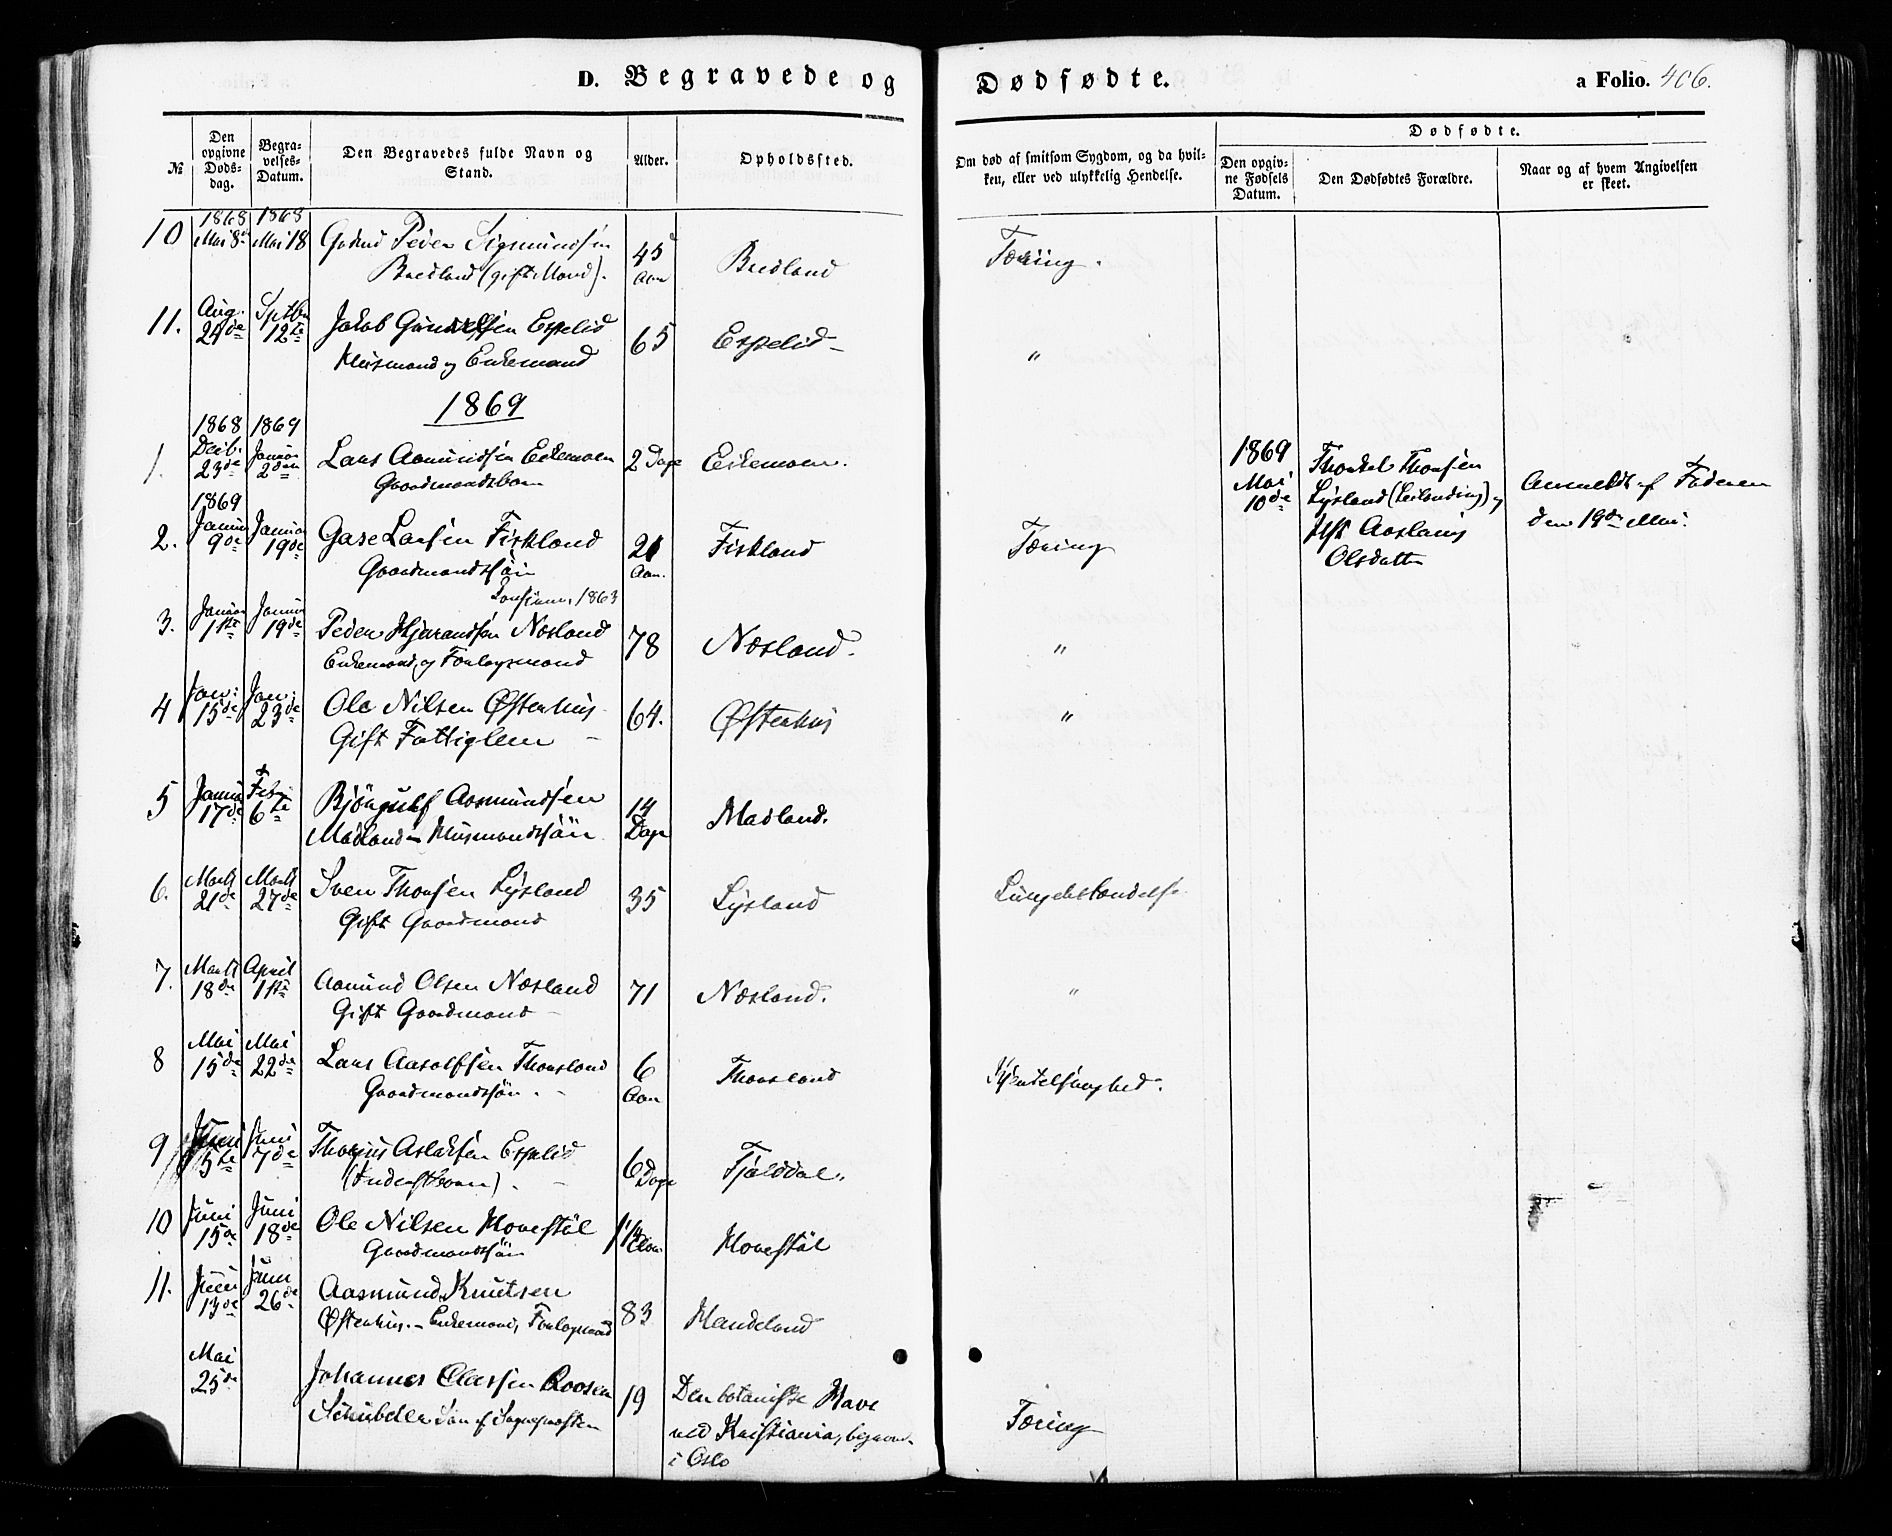 D. Begravede og Dødfødte. a Folio. 406.
Dødfødte.
№
Den opgivne Døds-dag.
Begra-velses-Datum.
Den Begravedes fulde Navn og Stand.
Alder.
Opholdssted.
Om død af smitsom Sygdom, og da hvil-ken, eller ved ulykkelig Hendelse.
Den opgiv-ne Fødsels Datum.
Den Dødfødtes Forældre.
Naar og af hvem Angivelsen er skeet.
1868 1868
10 Mai 8de Mai 18 Peder Sigmundsen 45 Bredland Tæring.
Bredland (gift Mand). Aar
11. Aug. 24de Septbr 12te Jakob Espelid 65 Espelid "
Husmand og Enkemand
1869
1868 1869
1. Decb. 23de Januar 2den Lars Aamundsen Eikemoen 2 Dage Eikemoen.
Gaardmandsbarn
1869
2. Januar 9de Januar 19de Gase Larsen Fiskland 21 Fiskland Tæring
Gaardmandssøn Aar.
1863
3. Januar 1ste Januar 19de Peder Hjerandsen Næsland 78 Næsland. "
Enkemand, og Forlagsmand
4 Jan: 15de Jan: 23de Ole Nilsen Østerhus 64. Østerhus "
Gift Fattiglem
5 Januar 17de Febr 6te Bjöngulf Aasmundsen 14 Dage Madland.
Madland Husmandssön
6. Marts 21de Marts 27de Sven Thorsen Lysland 35 Lysland Lungebetændelse
Gift Gaardmand
7. Marts 18de April 1ste Aamund Olsen Næsland 71 Næsland. "
Gift Gaardmand
8 Mai 15de Mai 22de Lars Aasolfsen Thorsland 6 Aar Thorsland
Gaardmandssøn.
9 Juni 5te Juni 7de Aslaksen Espelid 6 Dage Fjelddal.
10 Juni 15de Juni 18de Ole Nilsen Hovestöl 1 1/4 Aar Hovestöl
Gaardmandssön
11. Juni 13de Juni 26de Aasmund Knutsen 83 Mandeland
Østerhus. – Enkemand, Forlagsmand
Mai 25de Johannes Claessen Roosen 19 Den botaniske Have Tæring
Schübeler Søn af Sognepresten ved Kristiania, begravet
i Oslo
1869 Mai 10de
Thorkel Thorsen
Lysland (Leilending) og
Hst. Aaslaug
Olsdatter
Anmeldt af Faderen
den 19de Mai.